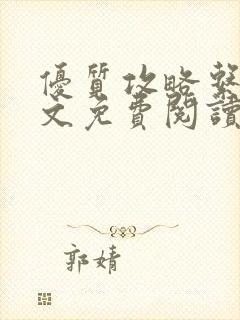 優質攻略繫
文免費閱讀
郭婧